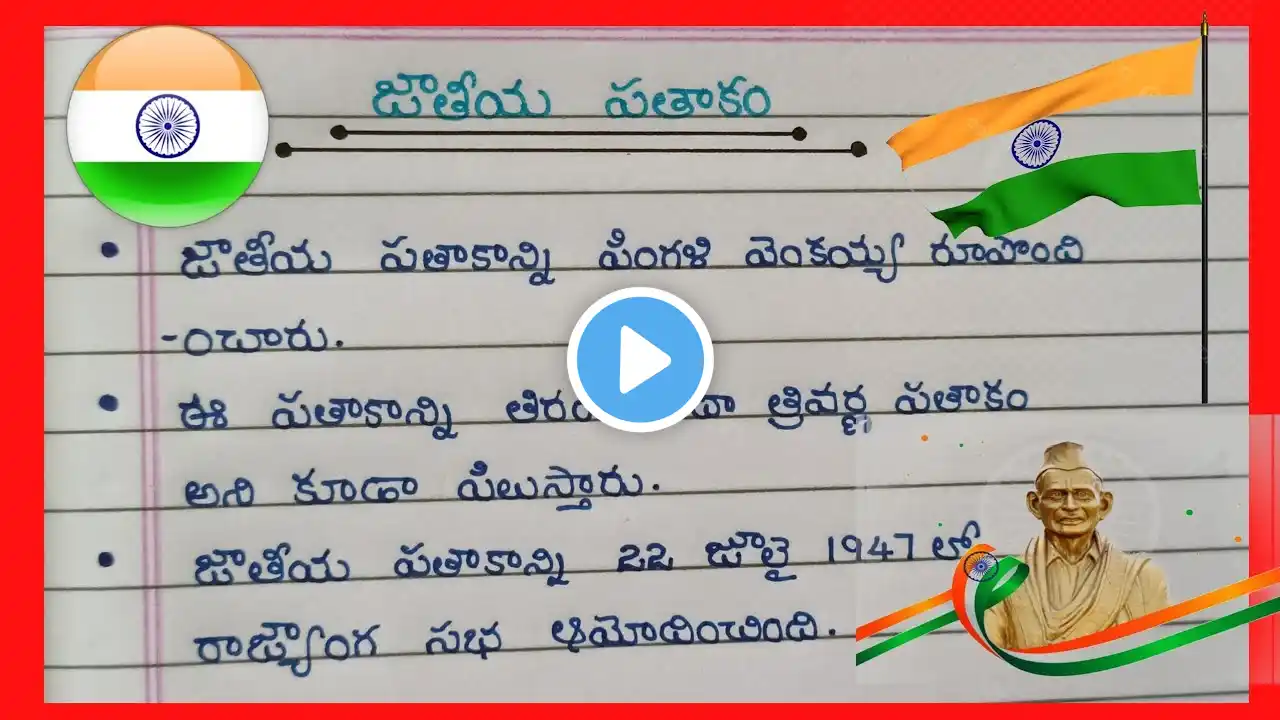 జాతీయ పతాకం
• జాతీయ పతాకాన్ని పింగళి వెంకయ్య రూపొంది
-ంచారు.
• ఈ పతాకాన్ని త్రివర్ణ పతాకం
అని కూడా పిలుస్తారు.
• జాతీయ పతాకాన్ని 22 జూలై 1947 లో
రాజ్యాంగ సభ ఆమోదించింది.